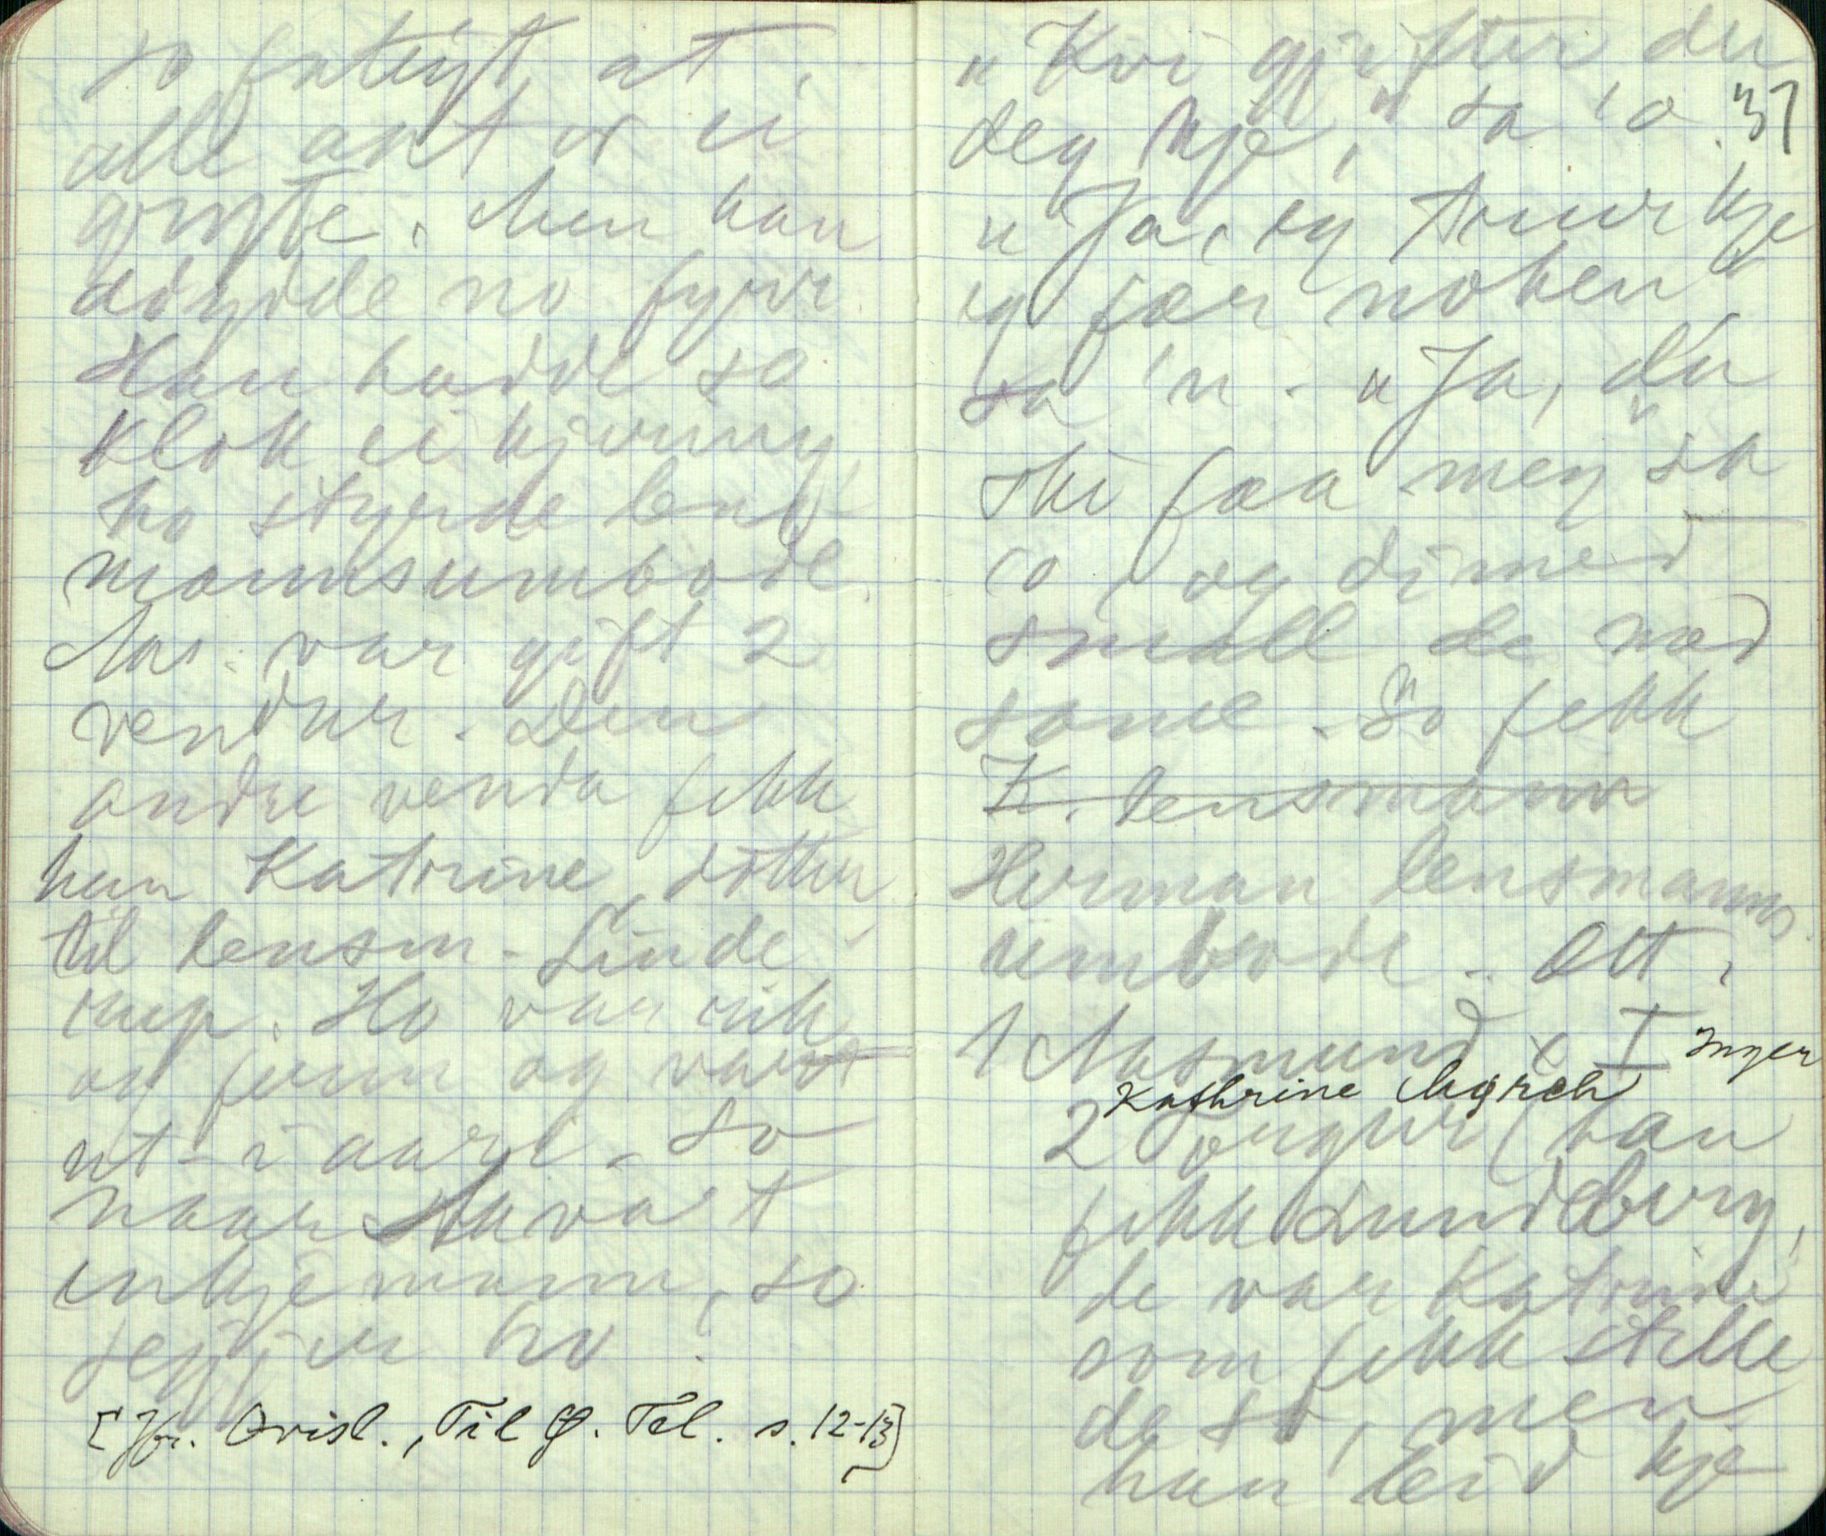 so fatigt at
alle ant er ei
grøfte. Men han
adlydde no fyrr
Han hadde so
klok ei kjerring,
ho styrde lens-
mannsumbode.
Aas. var gift 2
vendur. Den
andre venda fekk
han Katrine, dotter
til lensm. Linde
rup. Ho var rik
og finn og vart
ut-i aare. So
naar du va't
inkje mann, so
seggjer ho :
[Jfr. Ovisl., Til Ø. Tel. s. 12-13]
37
"Kvi gjifter du
deg kje," sa 'o
"Ja, eg truur kje
eg fær noken"
sa 'n. "Ja, du
ska faa meg" sa
'o, og dimed
small de med
same. So fekk
K. lensmann
Herman lensmanns
umbode. Att.
1 Aasmund x I Inger
Kathrine Mørch
2 (han
fekk Lundeborg,
de var Katrine
som fekk stelle
de so, men
han leid kje